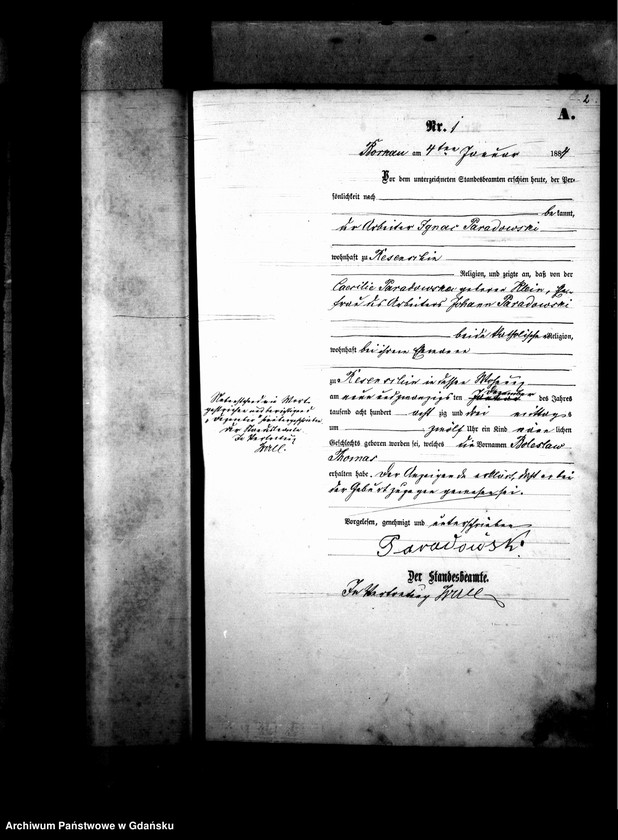 2
A.
Nr. 1
am 4ten Januar 1884
Vor dem unterzeichneten Standesbeamten erschien heute, der Per-
sönlichkeit nach
bekannt,
der Arbeiter Ignac Paradowski
wohnhaft zu
Religion, und zeigte an, daß von der
Caecilie Paradowska geborene Klein, Ehe-
frau des Arbeiters Johann Paradowski
beide katholischer Religion,
wohnhaft bei ihrem Ehemann
zu in dessen Wohnung
am neun und zwanzigsten Januar Dezember des Jahres
tausend acht hundert acht zig und drei mittags
um zwölf Uhr ein Kind männlichen
Geschlechts geboren worden sei, welches die Vornamen Boleslaw
Thomas
erhalten habe. Der Anzeigende erklärt, daß er bei
der Geburt zugegen gewesen sei.
Vorgelesen, genehmigt und unterschrieben
Paradowski
Der Standesbeamte.
In Vertretung
Nebenstehendes Wort
gestrichen und
„Dezember“
Der Standesbeamte
In Vertretung
Archiwum Państwowe w Gdańsku